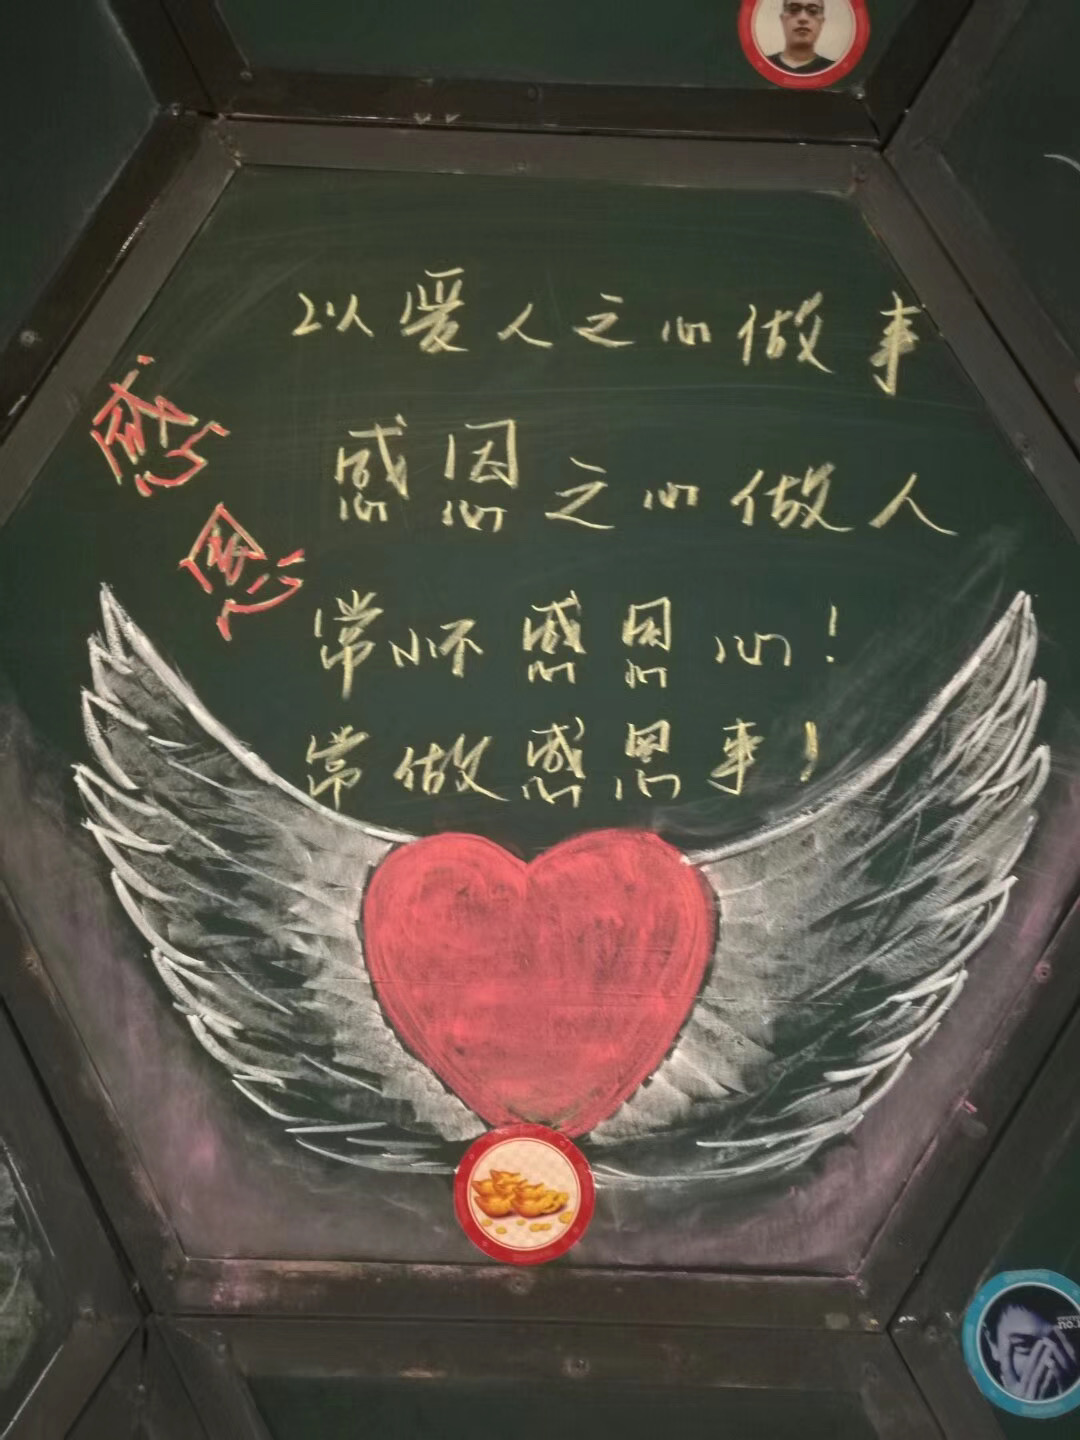 以爱人之心做事
感恩之心做人
常怀感恩心！
常做感恩事！
感恩